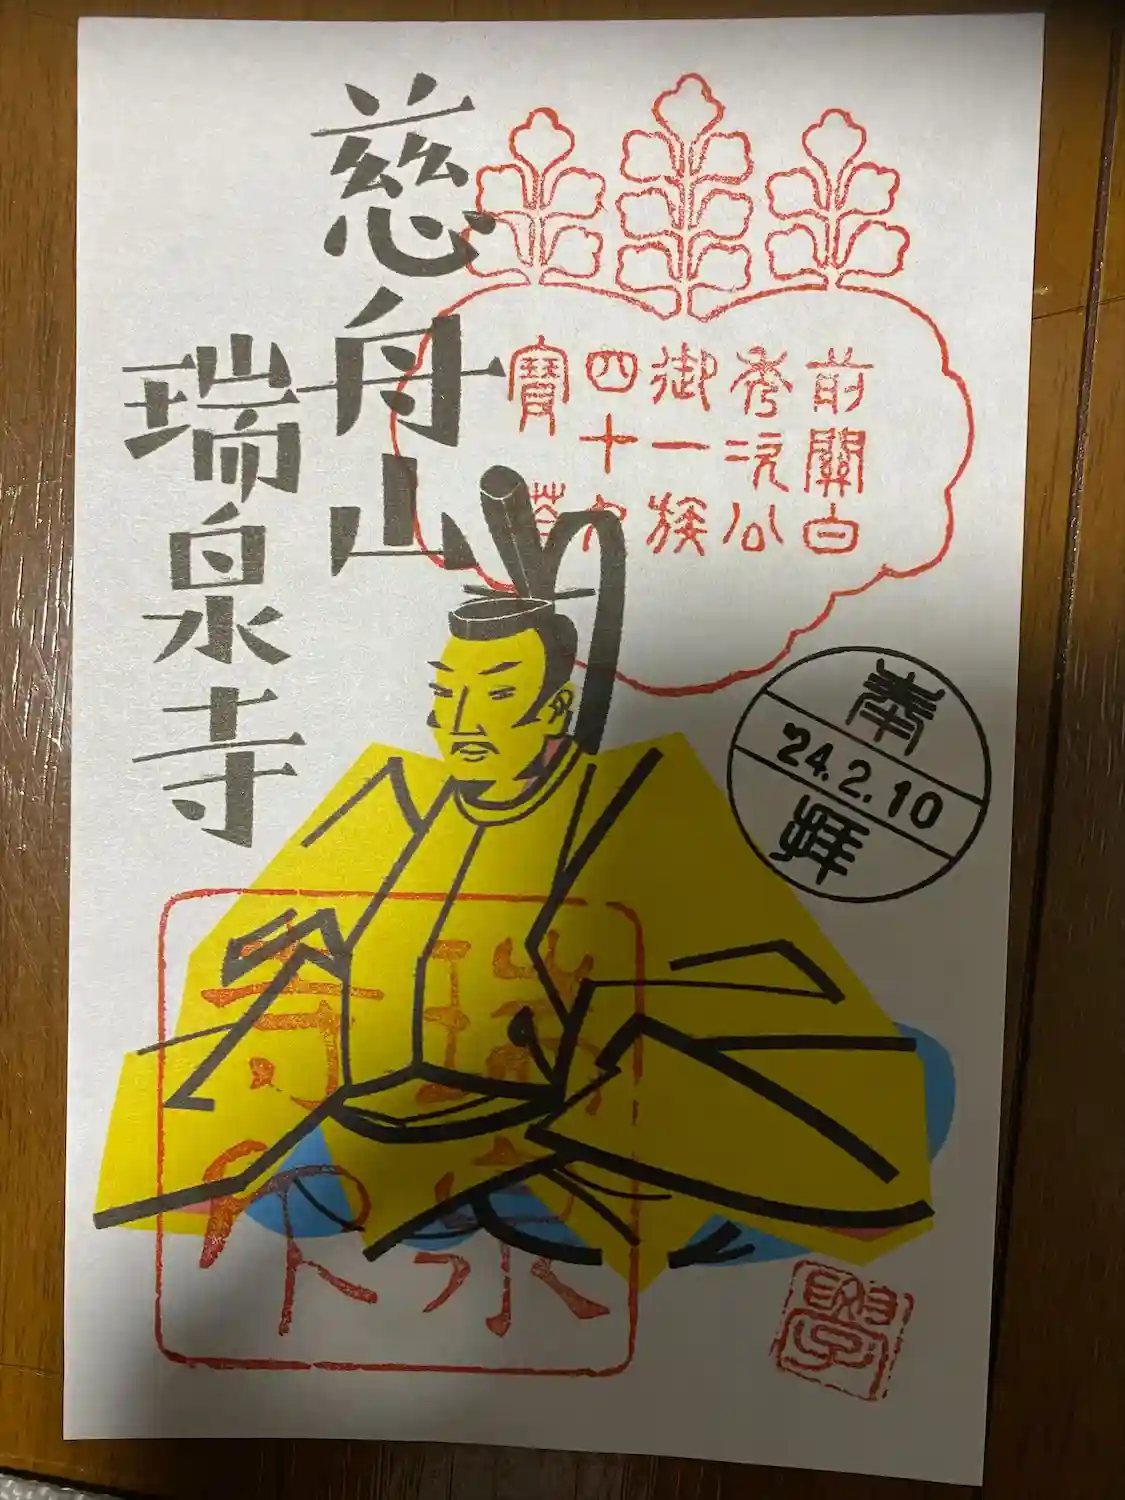 慈舟山
瑞泉寺
前關白
秀次公
御一族
四十九
寶塔
奉
'24.2.10
拜
瑞泉
寺印